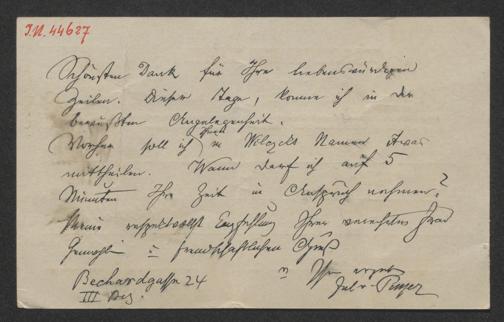 I.N. 44627
Schönsten Dank für Ihre liebenswürdigen
Zeilen. Dieser Tage, komme ich in der
bewußten Angelegenheit.
Vorher soll ich Ihnen in Namen etwas
mittheilen. Wann darf ich auf 5
Minuten Ihre Zeit in Anspruch nehmen?
Meine respektvollste Empfehlung Ihrer verehrten Frau
Gemahlin u freundschaftlichen Gruß
Ihr ergeb
Bechardgasse 24
III Bez.